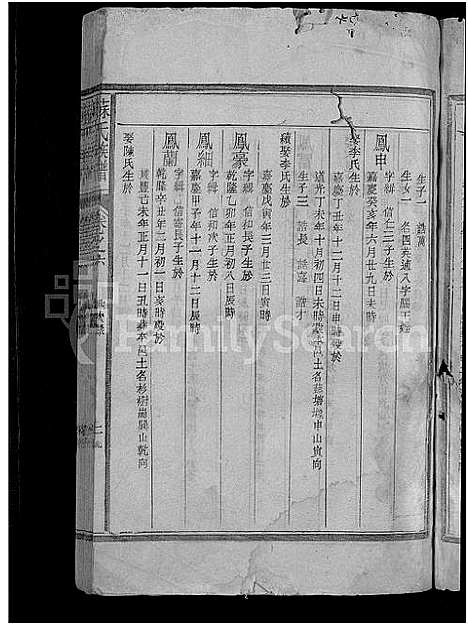 生子一 語萬
生女一 名四英適八字腦王姓
鳳申
字輯 信仁三子生於
嘉慶癸亥年六月廿九日未時
娶李氏生於
嘉慶丁丑年十二月十二日申時歿於
道光丁未年十月初四日未時葬 土名 塘塘申山寅向
續娶李氏生於
嘉慶戊寅年三月廿三日寅時
生子三 語長 語嘉 語才
鳳豪
字輯 信和長子生於
乾隆乙卯年正月初八日辰時
鳳紬
字輯 信和次子生於
嘉慶甲子年十一月十二日辰時
鳳蘭
字輯 信容長子生於
乾隆辛丑年二月初一日亥時歿於
咸豐己未年正月十一日丑時葬本邑土名杉樹 山乾向
娶陳氏生於
蘇氏族譜
卷之六
FamilySearch